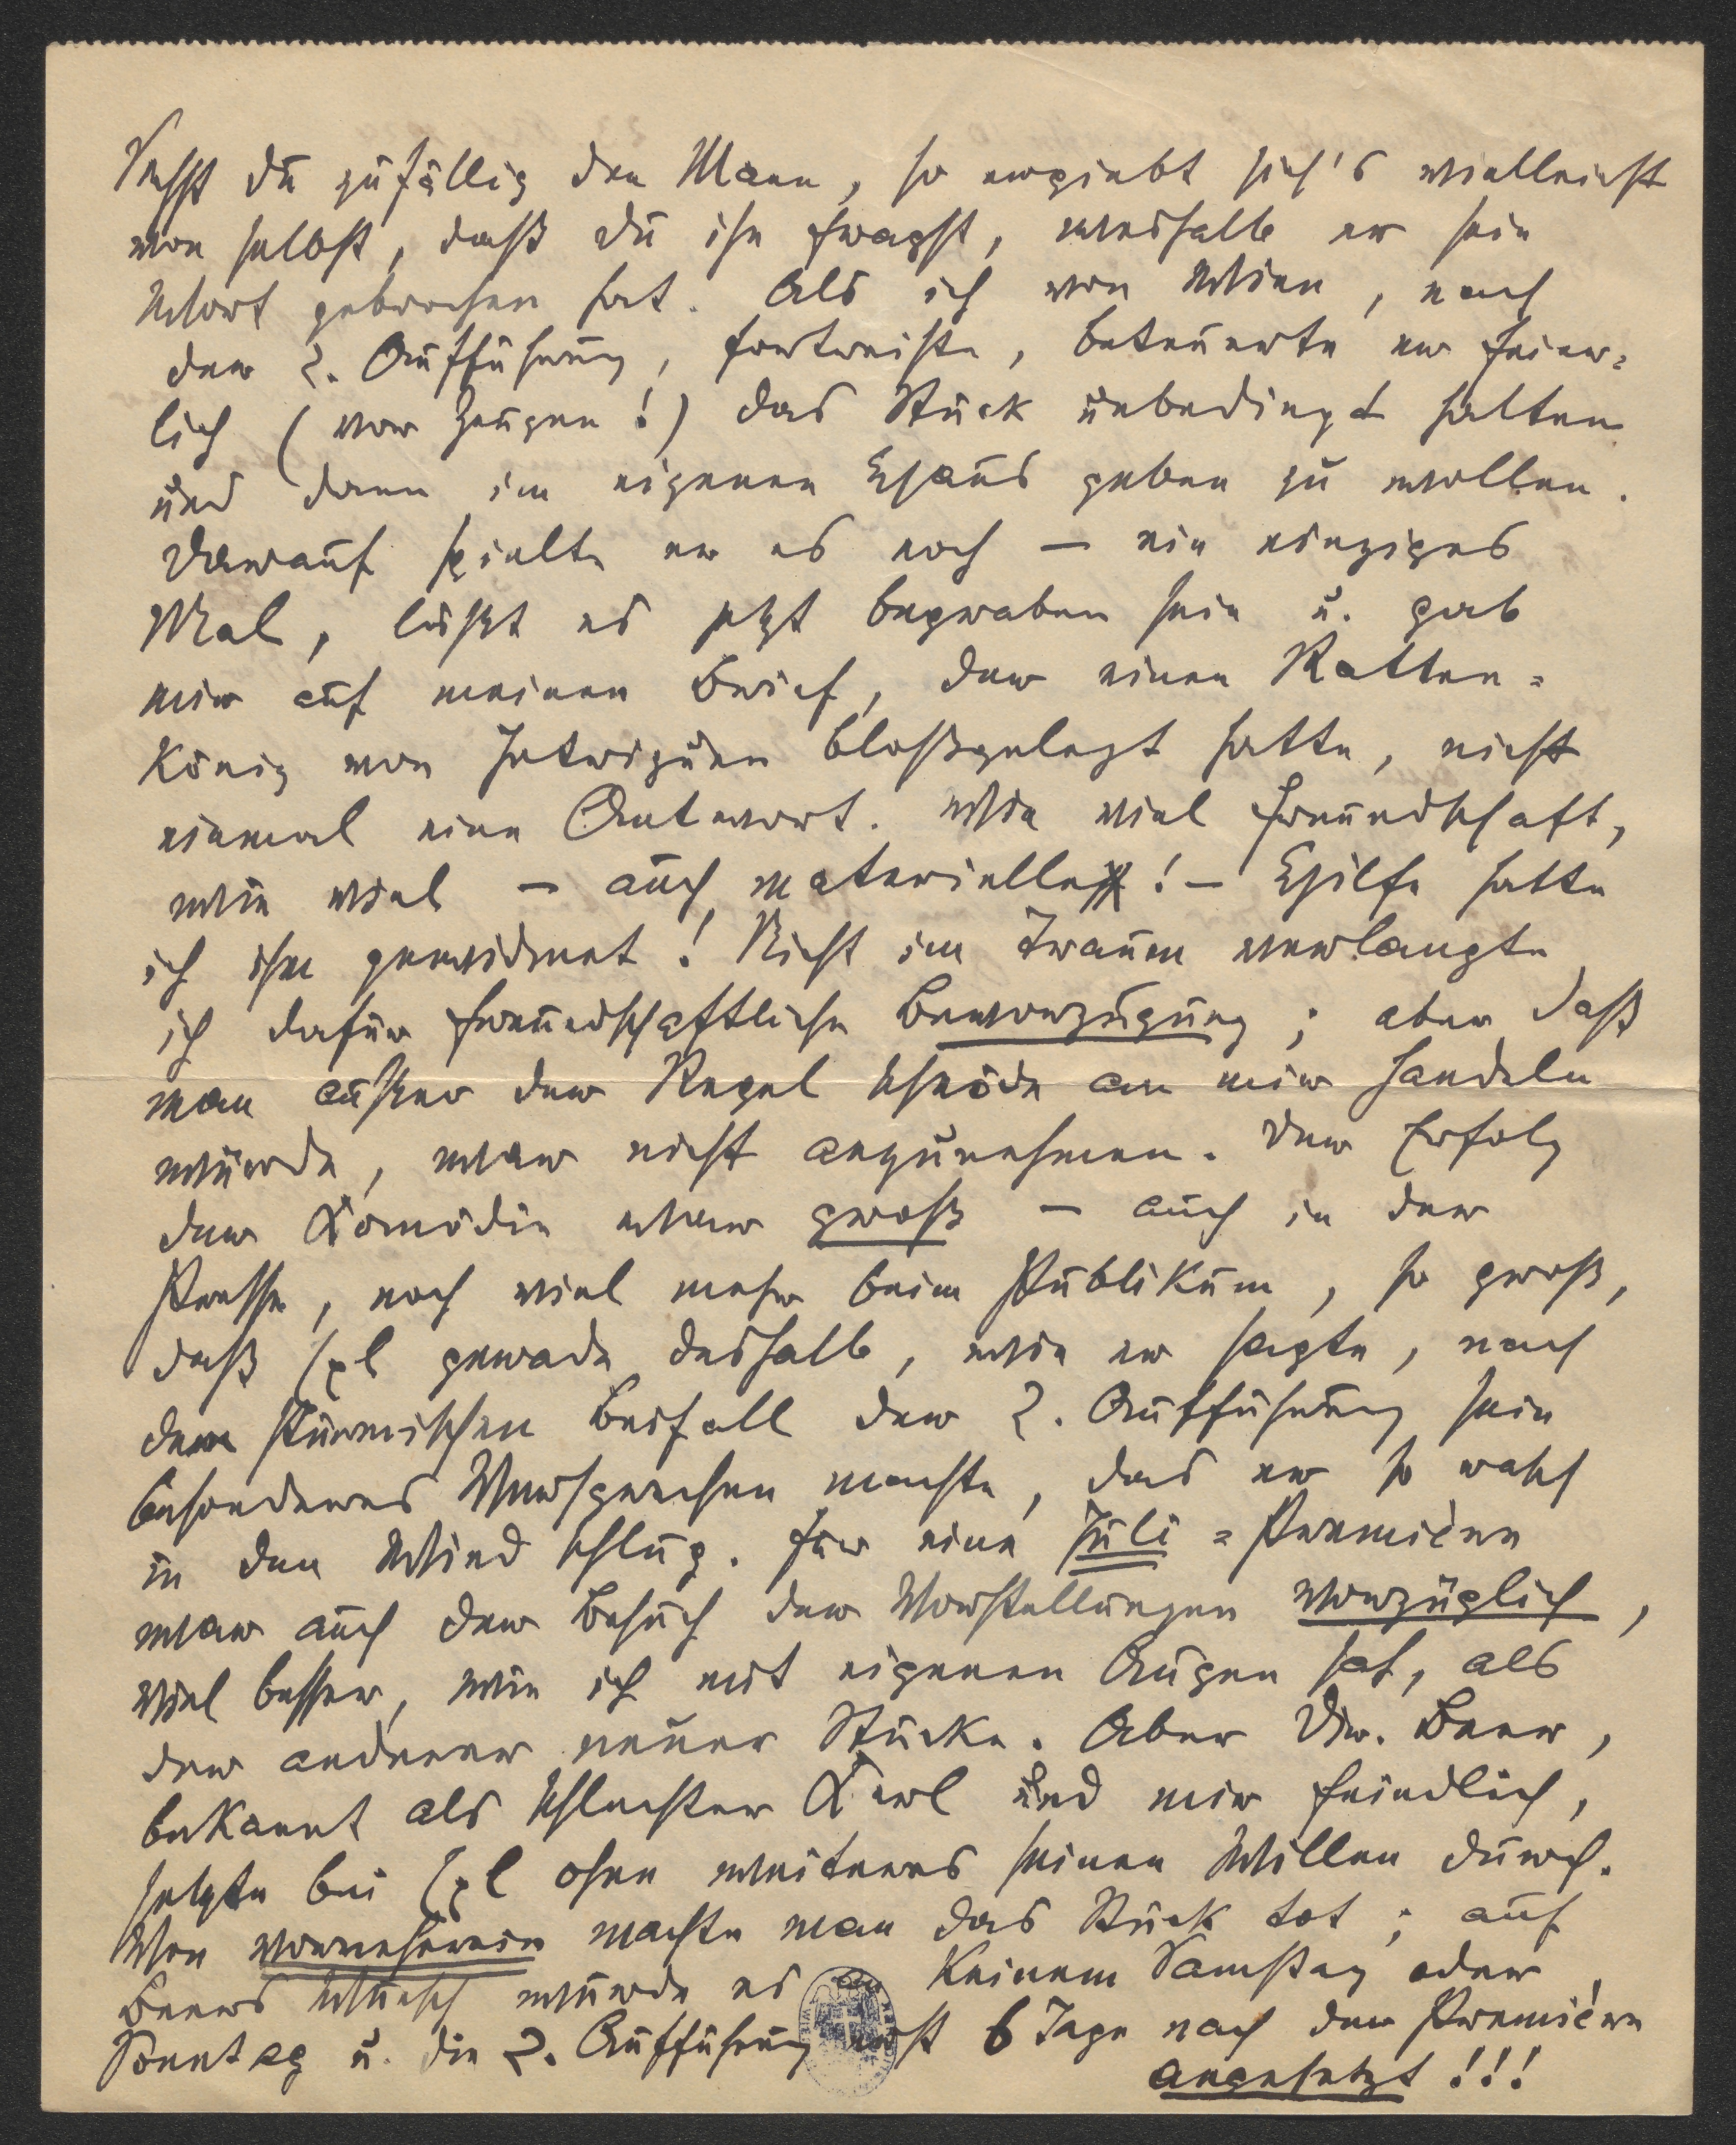 Siehst du zufällig den Mann, so ergiebt sich's vielleicht
von selbst, daß du ihn fragst, weshalb er sein
Wort gebrochen hat. Als ich von Wien, nach
der 2. Aufführung, fortreiste, beteuerte er feier=
lich (vor Zeugen!) das Stück unbedingt halten
und dann im eigenen Haus geben zu wollen.
Darauf spielte er es noch – ein einziges
Mal, läßt es jetzt begraben sein u. gab
mir auf meinen Brief, der einen Ratten=
könig von Intriguen bloßgelegt hatte, nicht
einmal eine Antwort. Wie viel Freundschaft,
wie viel – auch materielle! – Hilfe hatte
ich ihm gewidmet! Nicht im Traum verlangte
ich dafür freundschaftliche Bevorzugung; aber daß
man außer der Regel schnöde an mir handeln
würde, war nicht anzunehmen. Der Erfolg
der Komödie war groß – auch in der
Presse, noch viel mehr beim Publikum, so groß,
daß Exl gerade deshalb, wie er sagte, nach
dem stürmischen Beifall der 2. Aufführung sein
besonderes Versprechen machte, das er so rasch
in den Wind schlug. Für eine Juli=Première
war auch der Besuch der Vorstellungen vorzüglich,
viel besser, wie ich mit eigenen Augen sah, als
der anderer neuer Stücke. Aber Dir. Beer,
bekannt als schlechter Kerl und mir feindlich,
setzte bei Exl ohne weiteres seinen Willen durch.
Von vorneherein machte man das Stück tot; auf
Beers Wunsch wurde es an keinem Samstag oder
Sonntag u. die 2. Aufführung erst 6 Tage nach der Premiére
angesetzt!!!